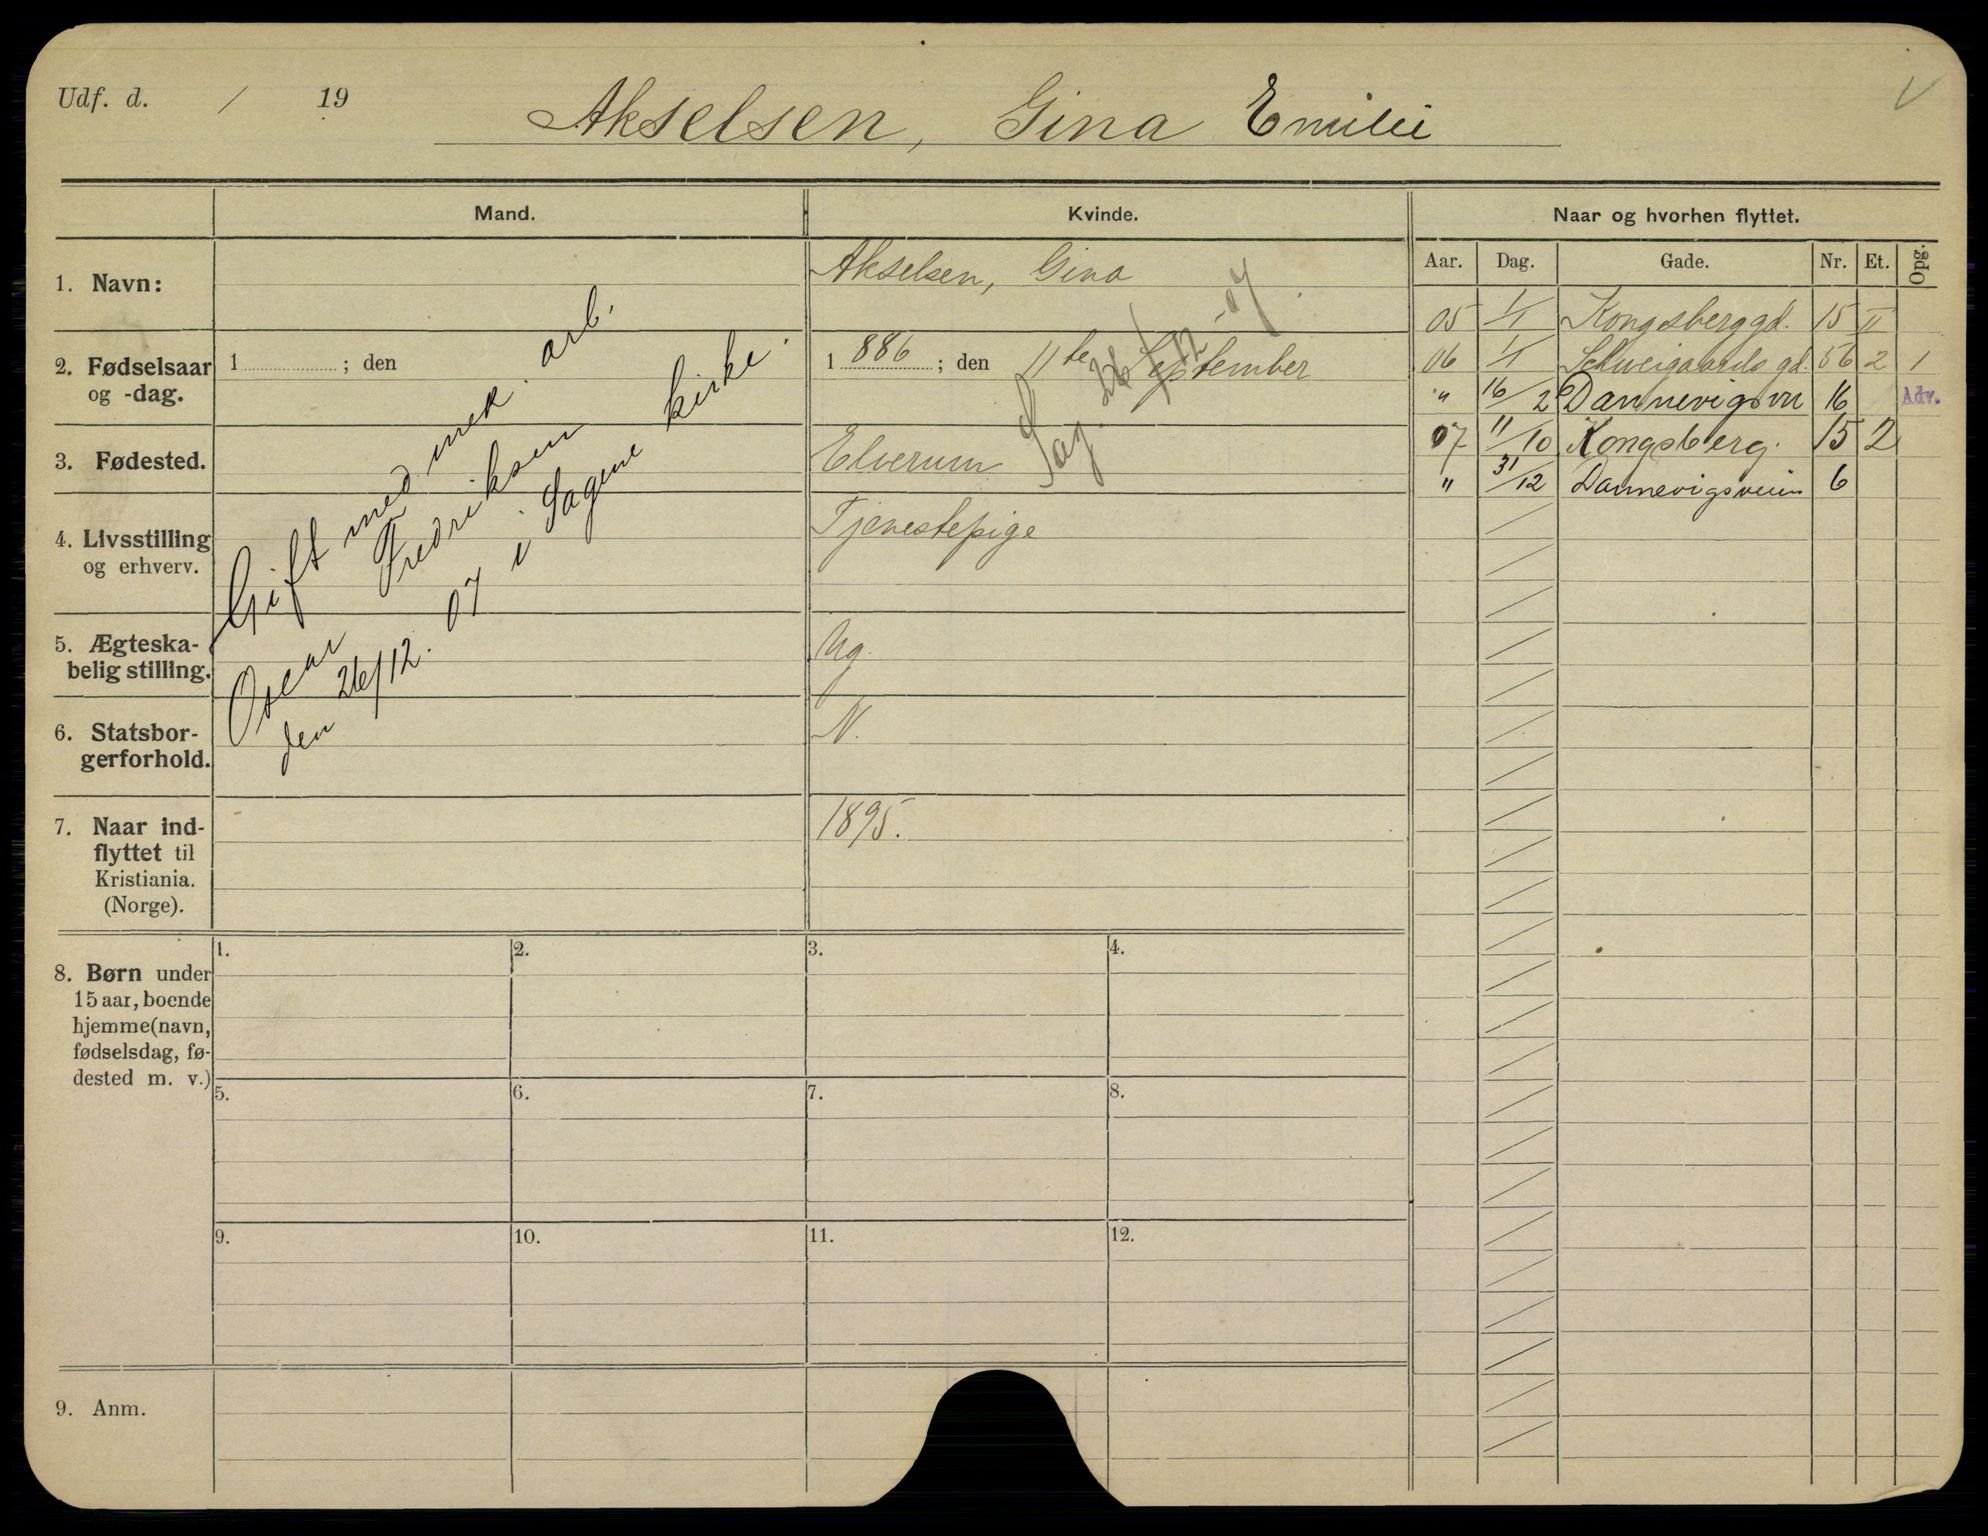 Udf. d. / 19
Akselsen, Gina Emilie
Mand.
Kvinde.
Naar og hvorhen flyttet.
Aar. Dag. Gade. Nr. Et. Opg.
1. Navn:
Akselsen, Gina
2. Fødselsaar
og -dag.
1 ; den
1 886 ; den 11te September
3. Fødested.
Elverum
Sag. 26/12-07
4. Livsstilling
og erhverv.
Tjenestepige
5. Ægteska-
belig stilling.
Ug.
6. Statsbor-
gerforhold.
N.
7. Naar ind-
flyttet til
Kristiania.
(Norge).
1895.
Gift med mek. arb.
Oscar Fredriksen
den 26/12. 07 i Sagene kirke.
05 1/1 Kongsberggd. 15 II
06 1/1 Schweigaards gd. 56 2 1
" 16/2 Dannevigsvn 16 Adv.
07 11/10 Kongsberg. 15 2
" 31/12 Dannevigsveien 6
8. Børn under
15 aar, boende
hjemme (navn,
fødselsdag, fø-
dested m. v.)
1. 2. 3. 4.
5. 6. 7. 8.
9. 10. 11. 12.
9. Anm.